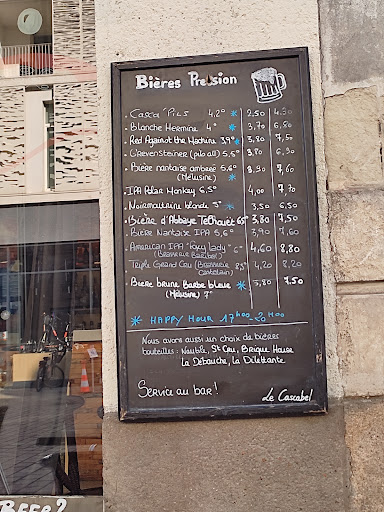 Bières Pression
Casca'Pils 4,2° * 2,50 4,50
Blanche Hermine 4° * 3,70 6,80
Red Against the Machine 3,9° * 3,80 7,50
Grevensteiner (pilo all) 5,5° 3,80 6,90
Bière nantaise ambrée 5,6° * 3,90 7,60
(Mélusine)
IPA Polar Monkey 6,5° 4,00 7,70
Noirmoutrine blonde 5° * 3,50 6,50
Bière d'Abbaye TeChouët 6,5° 3,80 7,50
Bière Nantaise IPA 5,6° 3,90 7,60
American IPA "Foxy lady" 6° 4,60 8,80
(Brasserie
Triple Grand Cru (Brasserie 8,5° 4,20 8,20
Bière brune Barbe bleue * 3,80 7,50
(Mélusine) 7°
* HAPPY HOUR 17h00-20H00
Nous avons aussi un choix de bières
bouteilles : Naüble, St Cru, Brique House
La Débauche, la Dilettante
Service au bar!
Le Cascabel
BEER?